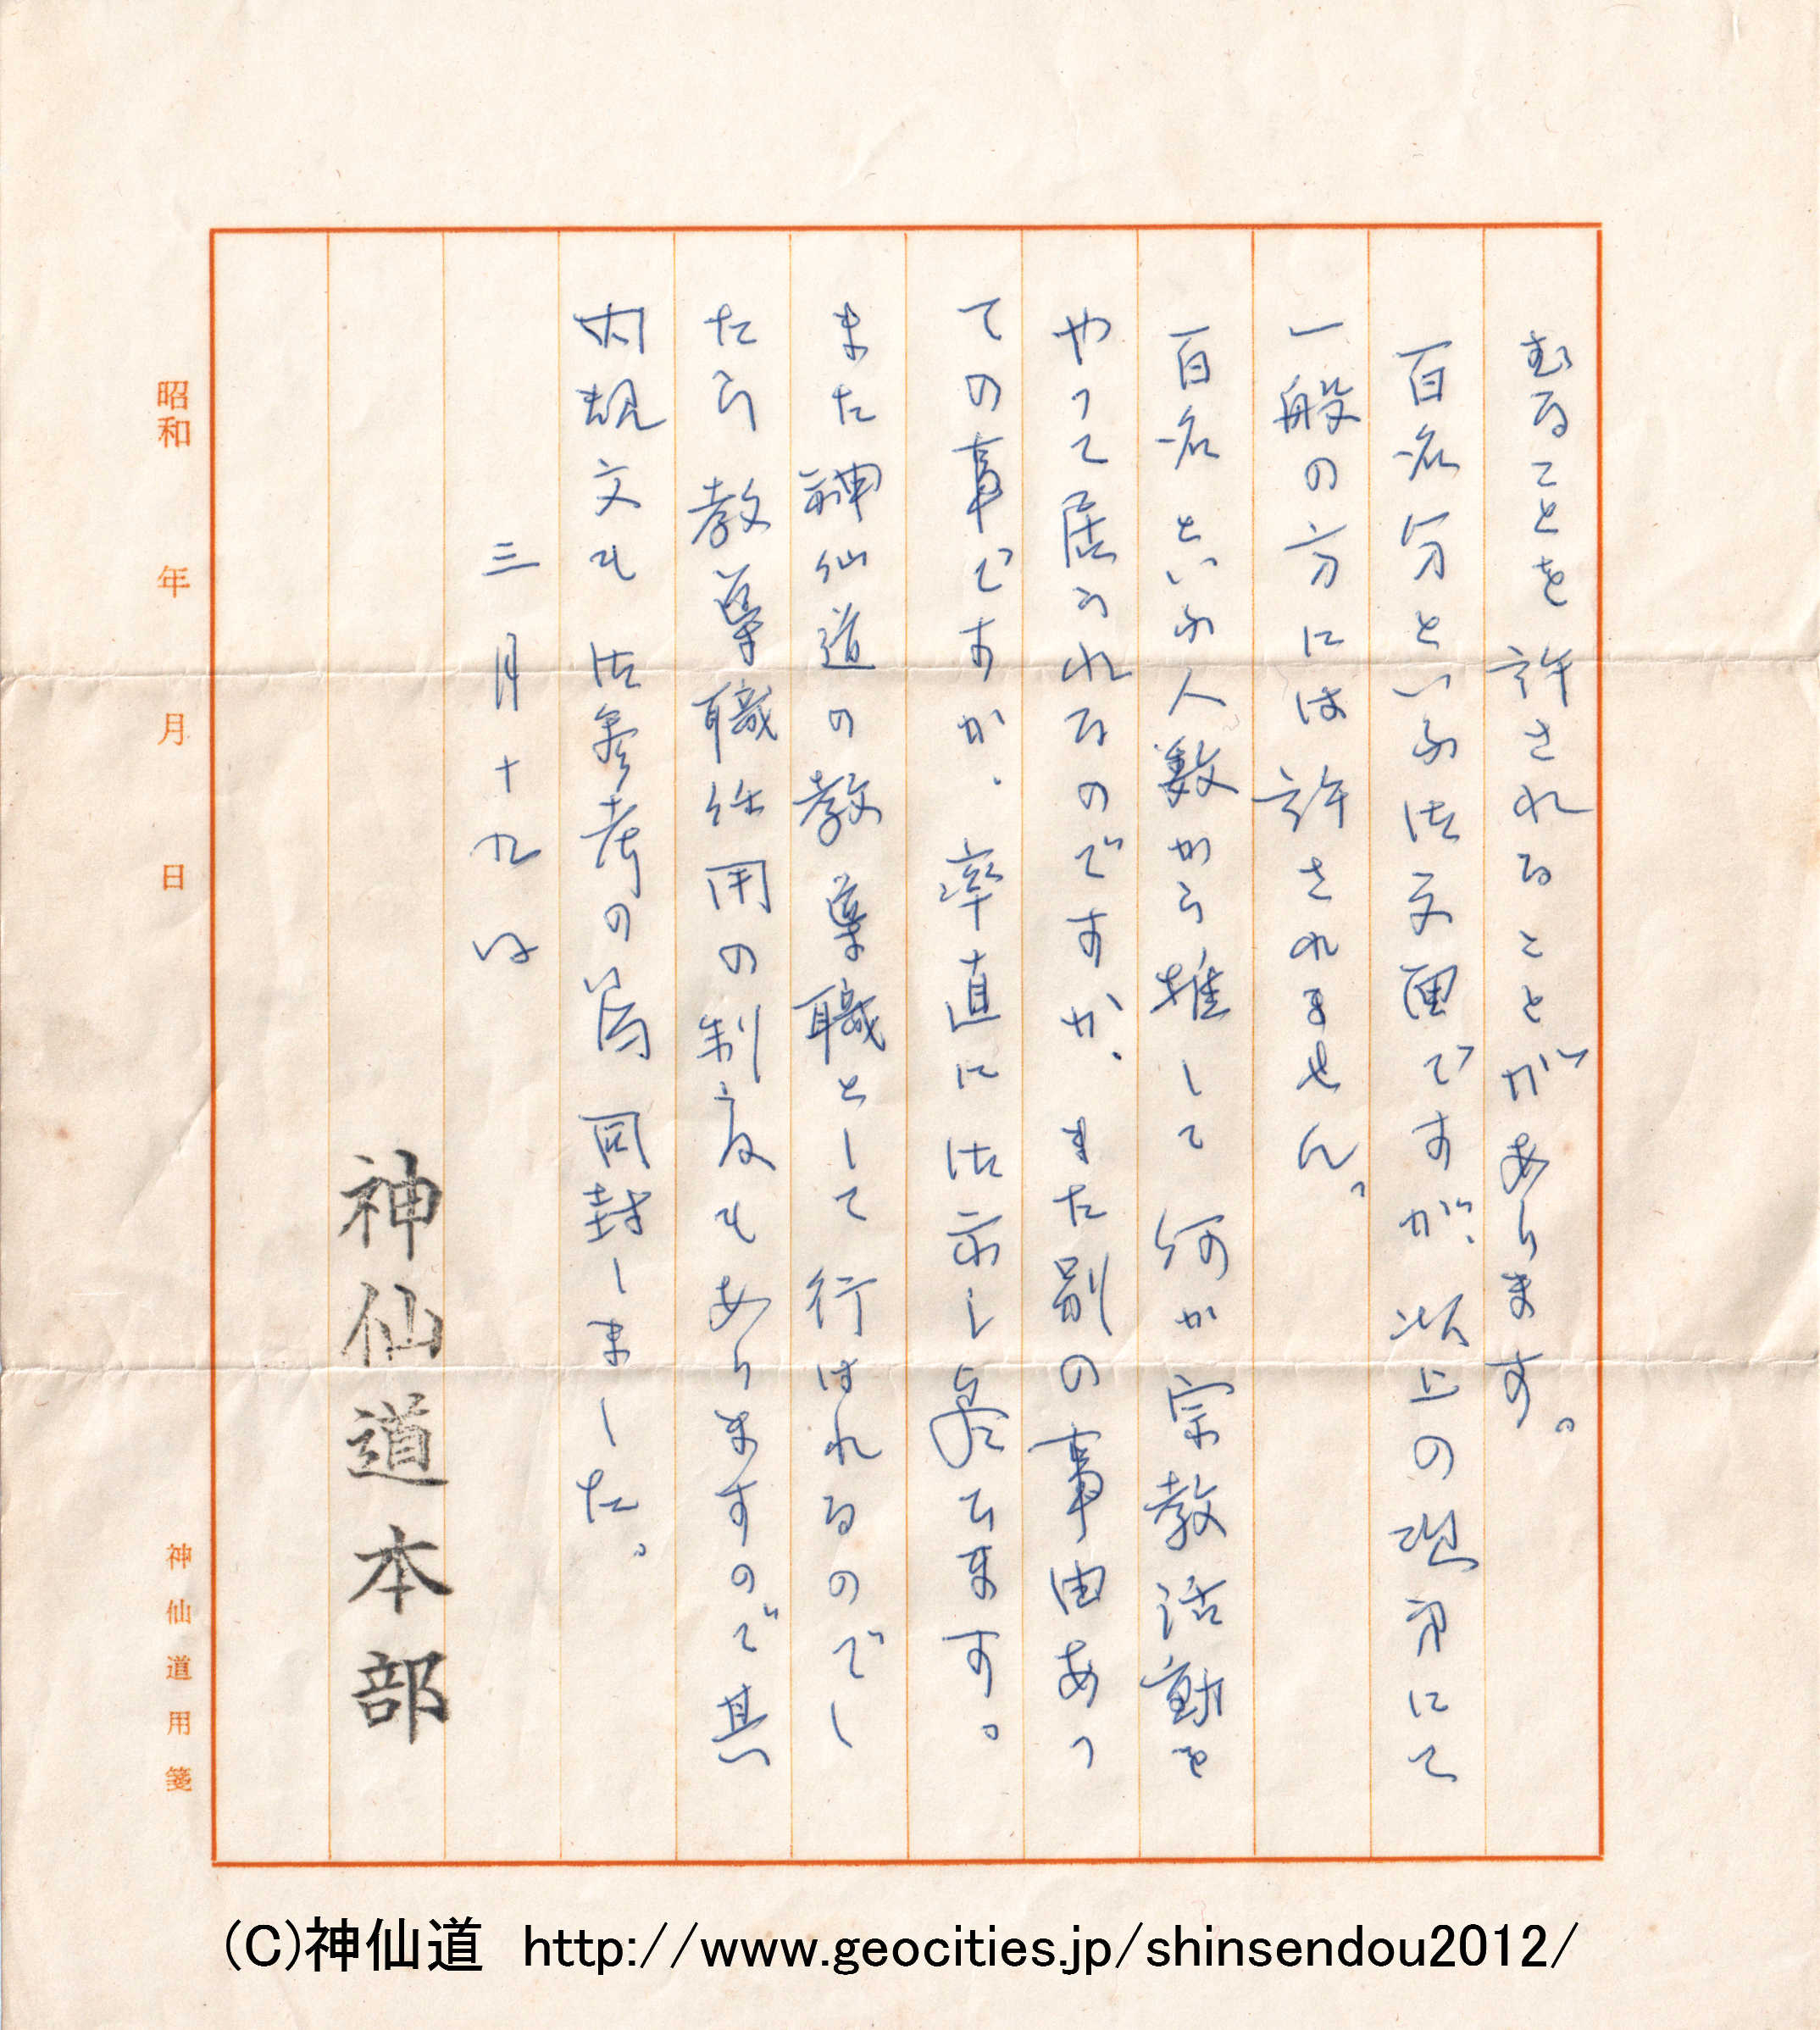 むることを許されることがあります。
百名分といふ御文面ですが、以上の理由にて
一般の方には許されません。
百名といふ人数から推して何か宗教活動を
やって居られるのですか、また別の事由あっ
ての事ですか、率直に御示し
ます。
また神仙道の教導職として行はれるのでし
たら教導職任用の制度もありますので其
内規文も御参考の為同封しました。
三月十九日
神仙道本部
昭和 年 月 日
神仙道用箋
(C)神仙道 http://www.geocities.jp/shinsendou2012/